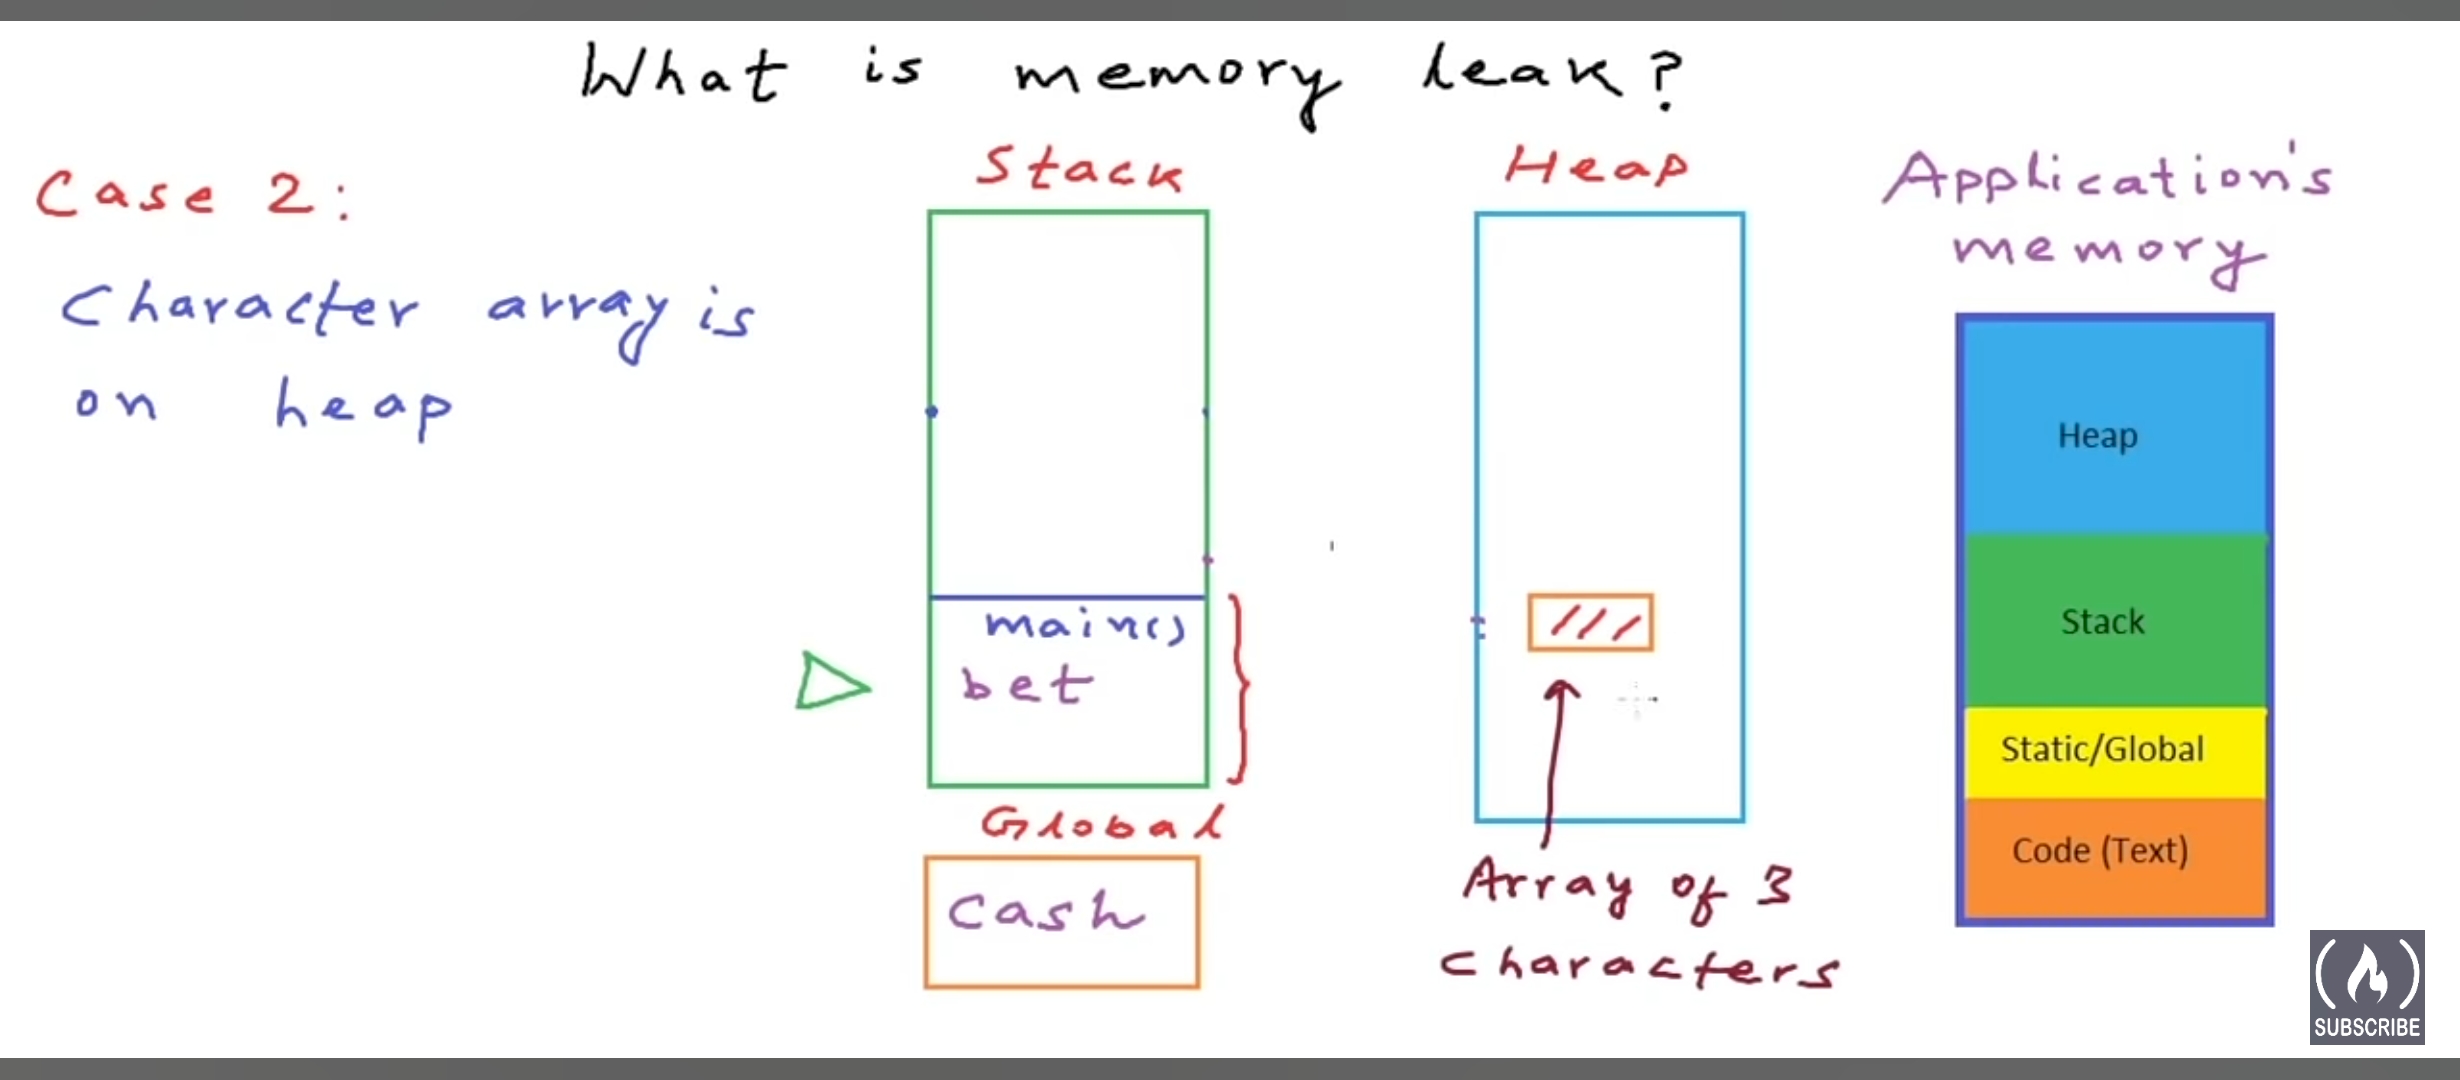 What is memory leak?
Case 2:
Character array is
on heap
Stack
main()
bet
Global
cash
Heap
Array of 3
characters
Application's
memory
Heap
Stack
Static/Global
Code (Text)
SUBSCRIBE